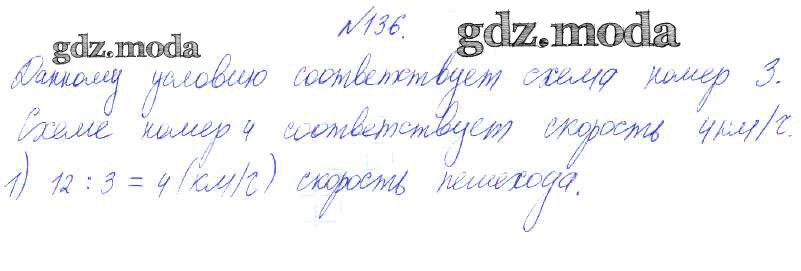 №136.
gdz.moda gdz.moda
Данному условию соответствует схема номер 3.
Схеме номер 4 соответствует скорость 4км/г.
1) 12 : 3 = 4 (км/г) скорость пешехода.